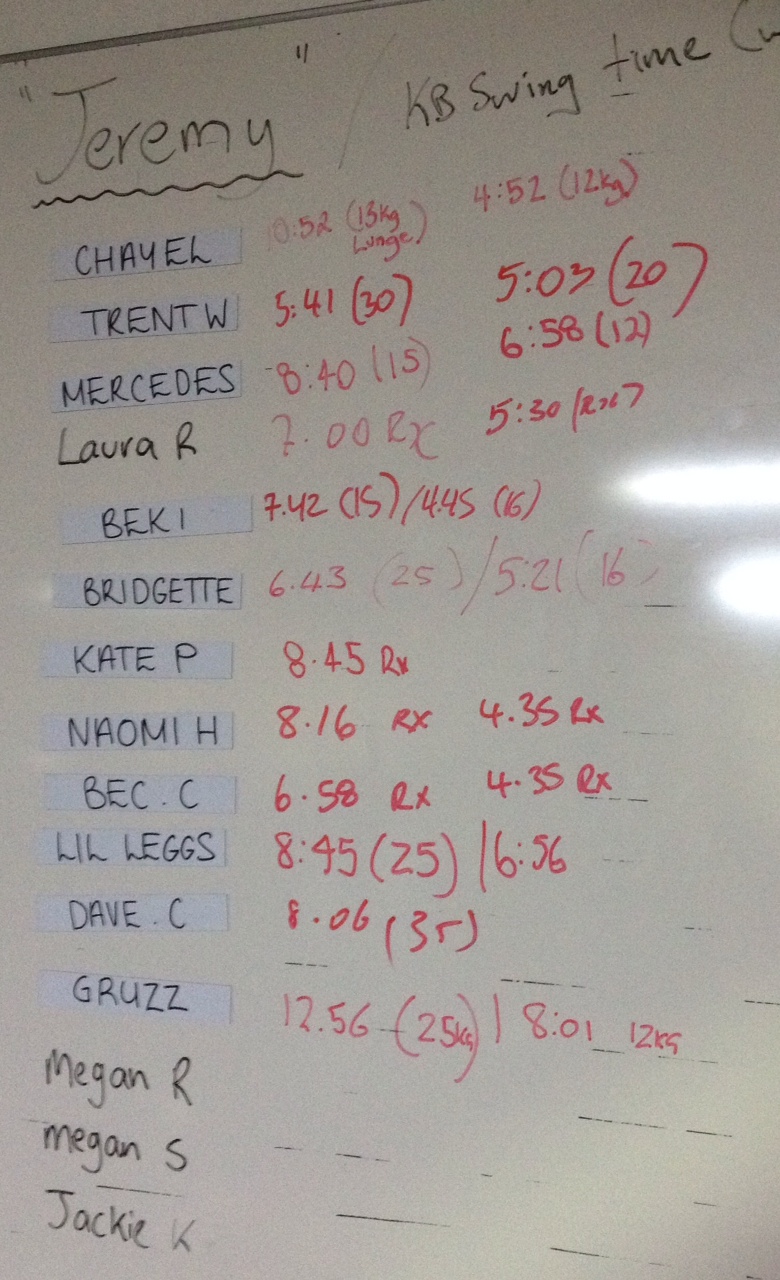 "Jeremy" / KB Swing time
CHAYEL 0:52 (13kg Lunge) 4:52 (12kg)
TRENT W 5:41 (30) 5:03 (20)
MERCEDES 8:40 (15) 6:58 (12)
Laura R 7.00 Rx 5:30 (Rx)
BEK I 7.42 (15) / 4.45 (16)
BRIDGETTE 6.43 (25) / 5:21 (16)
KATE P 8.45 Rx
NAOMI H 8.16 RX 4.35 Rx
BEC.C 6.58 Rx 4.35 Rx
LIL LEGGS 8:45 (25) | 6:56
DAVE.C 8.06 (35)
GRUZZ 12.56 (25kg) | 8:01 12kg
Megan R
Megan S
Jackie K